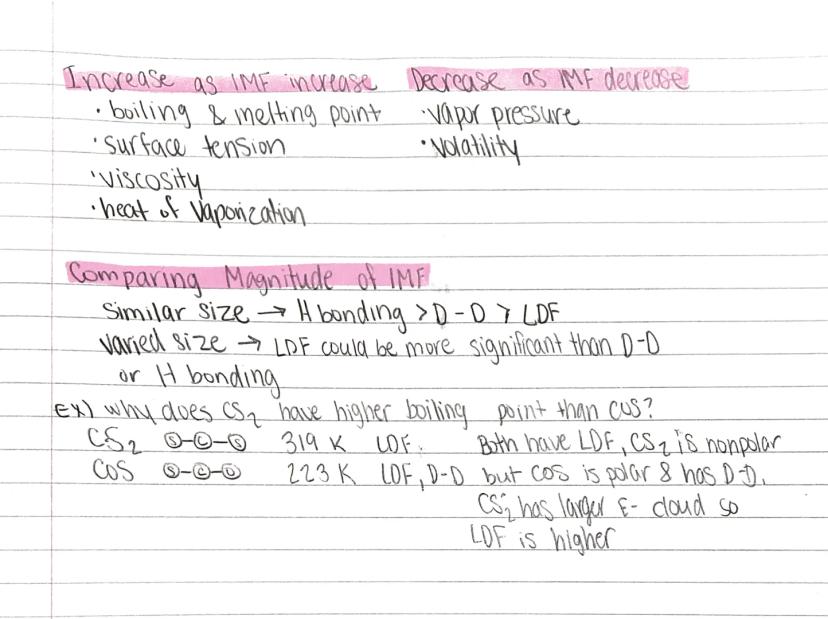 Increase as IMF increase
• boiling & melting point
• surface tension
• viscosity
• heat of vaporization
Decrease as IMF decrease
• vapor pressure
• volatility
Comparing Magnitude of IMF
Similar size → H bonding > D-D > LDF
varied size → LDF could be more significant than D-D
or H bonding
Ex) why does CS₂ have higher boiling point than COS?
CS₂ S-C-S 319 K LDF. Both have LDF, CS₂ is nonpolar
COS S-C-O 223 K LDF, D-D but COS is polar & has D-D.
CS₂ has larger E- cloud so
LDF is higher